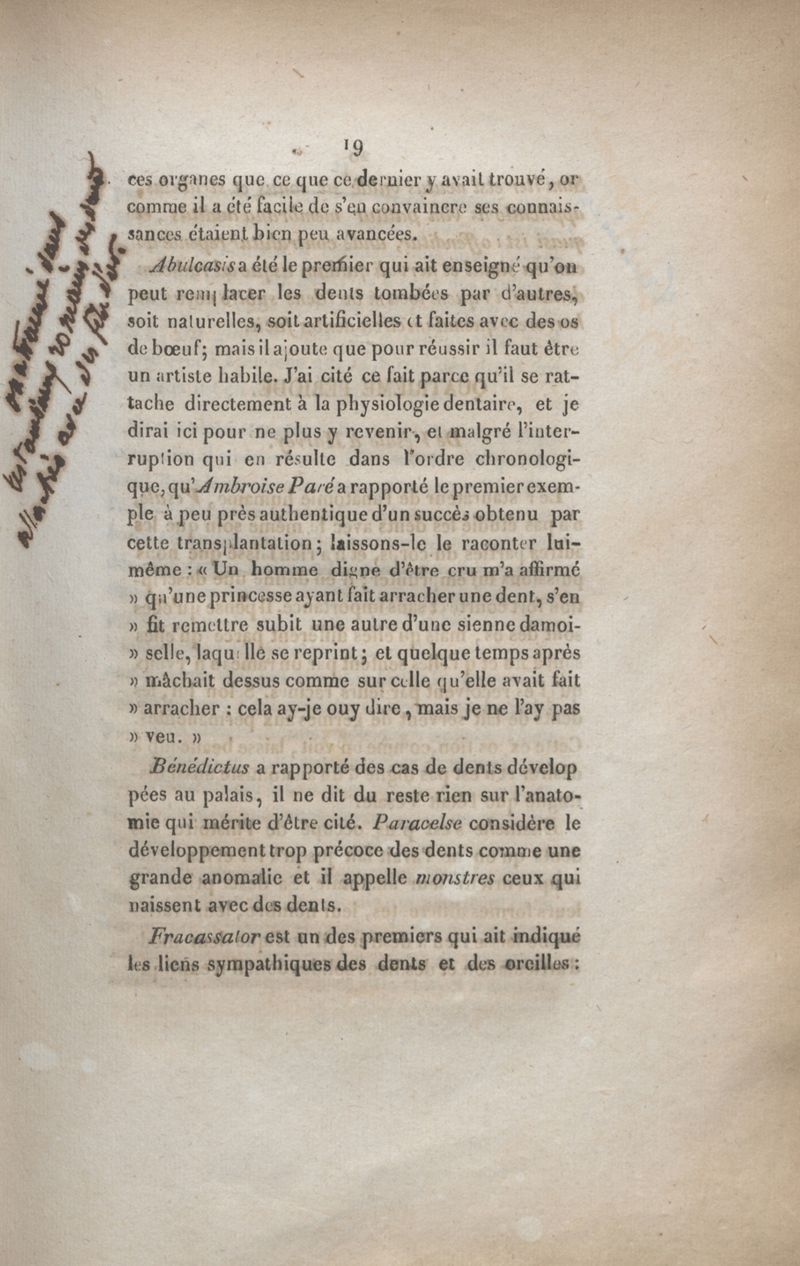 19
ces organes que ce que ce dernier y avait trouvé, or
comme il a été facile de s'en convaincre ses connais-
sances étaient bien peu avancées.
Abulcasis a été le premier qui ait enseigné qu'on
peut remplacer les dents tombées par d'autres,
soit naturelles, soit artificielles et faites avec des os
de bœuf; mais il ajoute que pour réussir il faut être
un artiste habile. J'ai cité ce fait parce qu'il se rat-
tache directement à la physiologie dentaire, et je
dirai ici pour ne plus y revenir, et malgré l'inter-
ruption qui en résulte dans l'ordre chronologi-
que, qu'Ambroise Paré a rapporté le premier exem-
ple à peu près authentique d'un succès obtenu par
cette transplantation; laissons-le le raconter lui-
même : « Un homme digne d'être cru m'a affirmé
» qu'une princesse ayant fait arracher une dent, s'en
» fit remettre subit une autre d'une sienne damoi-
» selle, laquelle se reprint; et quelque temps après
» mâchait dessus comme sur celle qu'elle avait fait
» arracher : cela ay-je ouy dire, mais je ne l'ay pas
» veu. »
Bénédictus a rapporté des cas de dents dévelop
pées au palais, il ne dit du reste rien sur l'anato-
mie qui mérite d'être cité. Paracelse considère le
développement trop précoce des dents comme une
grande anomalie et il appelle monstres ceux qui
naissent avec des dents.
Fracassator est un des premiers qui ait indiqué
les liens sympathiques des dents et des oreilles :
dans
les romains des dents
avec des fils d'or